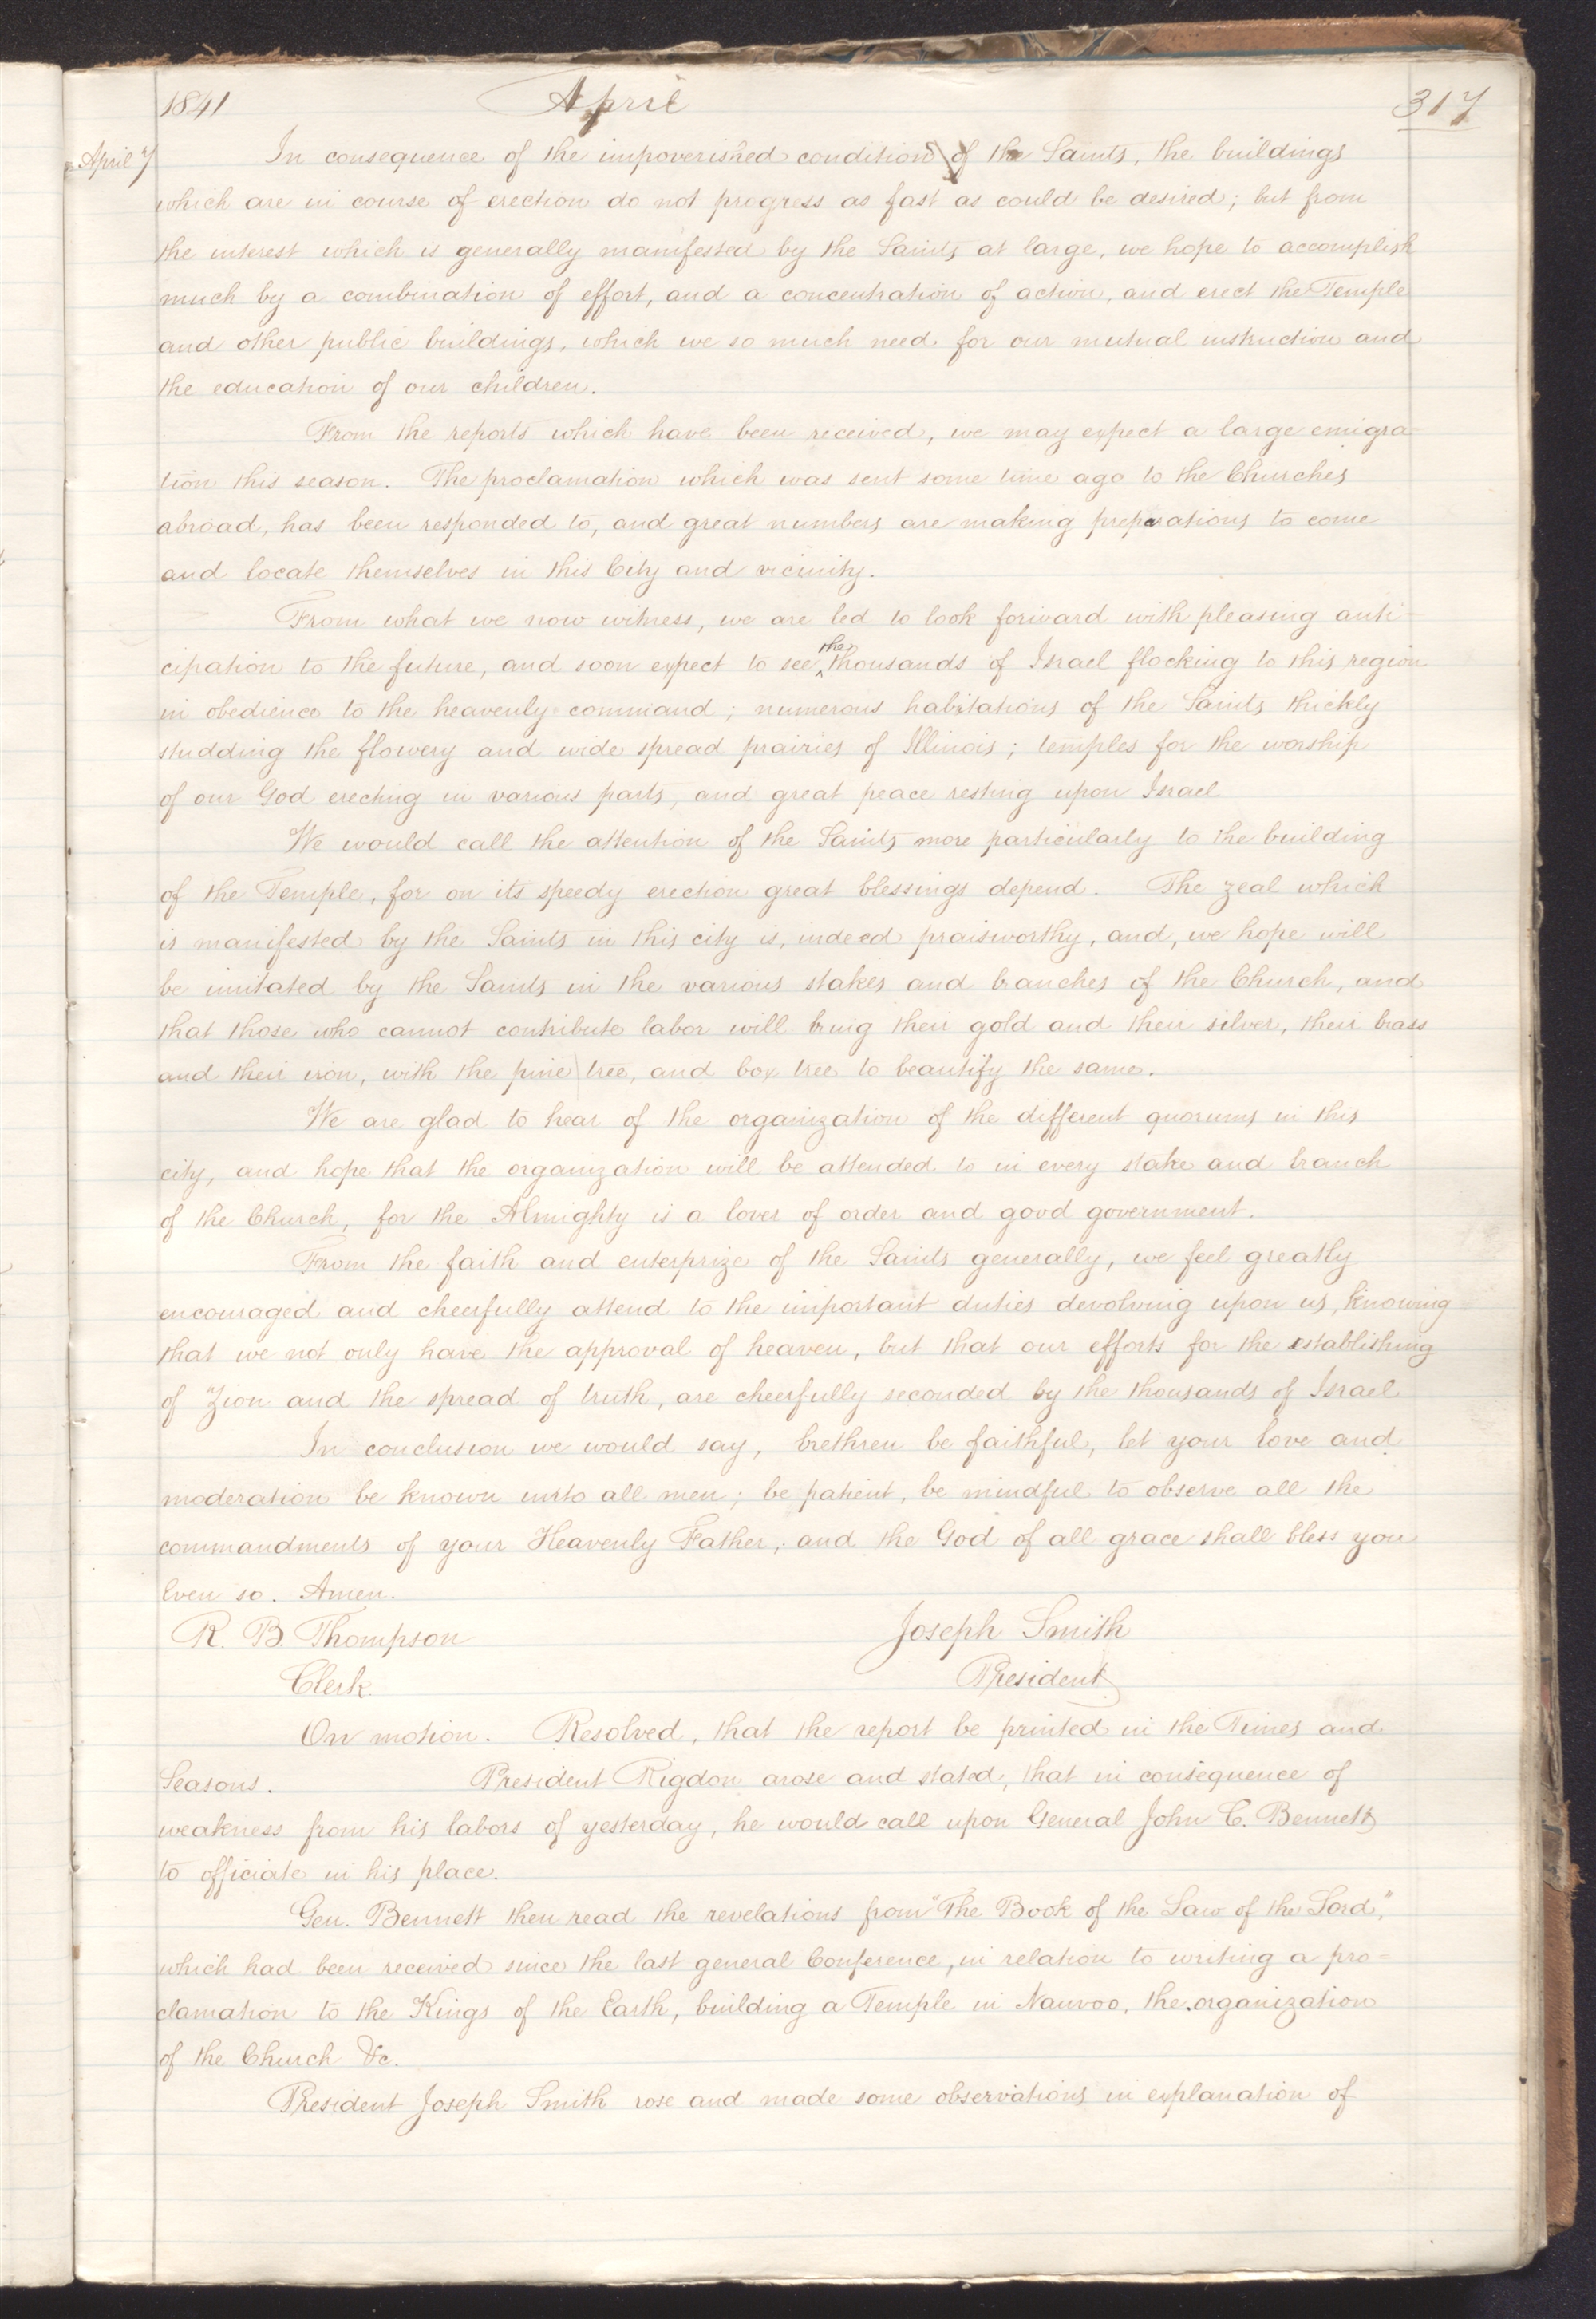 1841 April 317
April 7 In consequence of the impoverished condition of the Saints, the buildings
which are in course of erection do not progress as fast as could be desired; but from
the interest which is generally manifested by the Saints at large, we hope to accomplish
much by a combination of effort, and a concentration of action, and erect the Temple
and other public buildings, which we so much need for our mutual instruction and
the education of our children.
From the reports which have been received, we may expect a large emigra-
tion this season. The proclamation which was sent some time ago to the Churches
abroad, has been responded to, and great numbers are making preparations to come
and locate themselves in this City and vicinity.
From what we now witness, we are led to look forward with pleasing anti-
cipation to the future, and soon expect to see the thousands of Israel flocking to this region
in obedience to the heavenly command; numerous habitations of the Saints thickly
studding the flowery and wide spread prairies of Illinois; temples for the worship
of our God erecting in various parts, and great peace resting upon Israel
We would call the attention of the Saints more particularly to the building
of the Temple, for on its speedy erection great blessings depend. The zeal which
is manifested by the Saints in this city is, indeed praisworthy, and, we hope will
be imitated by the Saints in the various stakes and branches of the Church, and
that those who cannot contribute labor will bring their gold and their silver, their brass
and their iron, with the pine tree, and box tree to beautify the same.
We are glad to hear of the organization of the different quorums in this
city, and hope that the organization will be attended to in every stake and branch
of the Church, for the Almighty is a lover of order and good government.
From the faith and enterprize of the Saints generally, we feel greatly
encouraged and cheerfully attend to the important duties devolving upon us, knowing
that we not only have the approval of heaven, but that our efforts for the establishing
of Zion and the spread of truth, are cheerfully seconded by the thousands of Israel
In conclusion we would say, brethren be faithful, let your love and
moderation be known unto all men; be patient, be mindful to observe all the
commandments of your Heavenly Father, and the God of all grace shall bless you
Even so. Amen.
R. B. Thompson Joseph Smith
Clerk. President
On motion. Resolved, that the report be printed in the Times and
Seasons. President Rigdon arose and stated, that in consequence of
weakness from his labors of yesterday, he would call upon General John C. Bennett
to officiate in his place.
Gen. Bennett then read the revelations from "The Book of the Law of the Lord,"
which had been received since the last general Conference, in relation to writing a pro=
clamation to the Kings of the Earth, building a Temple in Nauvoo, the organization
of the Church &c.
President Joseph Smith rose and made some observations in explanation of